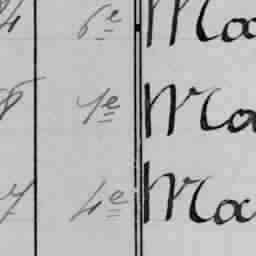 4 6e Ma
8 7e Ma
7 4e Ma